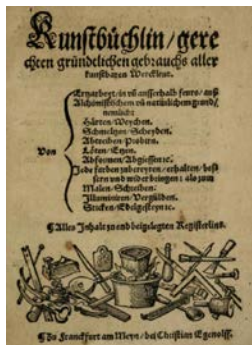 Kunstbüchlin/ gere
chten gründelichen gebrauchs aller
kunstbaren Werckleut.
Ertzarbeyt/ in vñ ausserhalb feurs/ auß
Alchimistischem vñ natürlichem grund/
nemlich:
Härten/ Weychen.
Schmeltzen/ Scheyden.
Abtreiben/ Probirn.
Von
Löten/ Etzen.
Abformen/ Abgiessen ꝛc.
Jede farben zubereyten/ erhalten/ bess
sern und widerbringen: als zum
Malen/ Schreiben.
Illuminiren/ Vergülden.
Sticken/ Edelgesteyn ꝛc.
¶ Alles Inhalt zu end beigelegten Registerlins.
¶ Zu Franckfurt am Meyn/ bei Christian Egenolff.